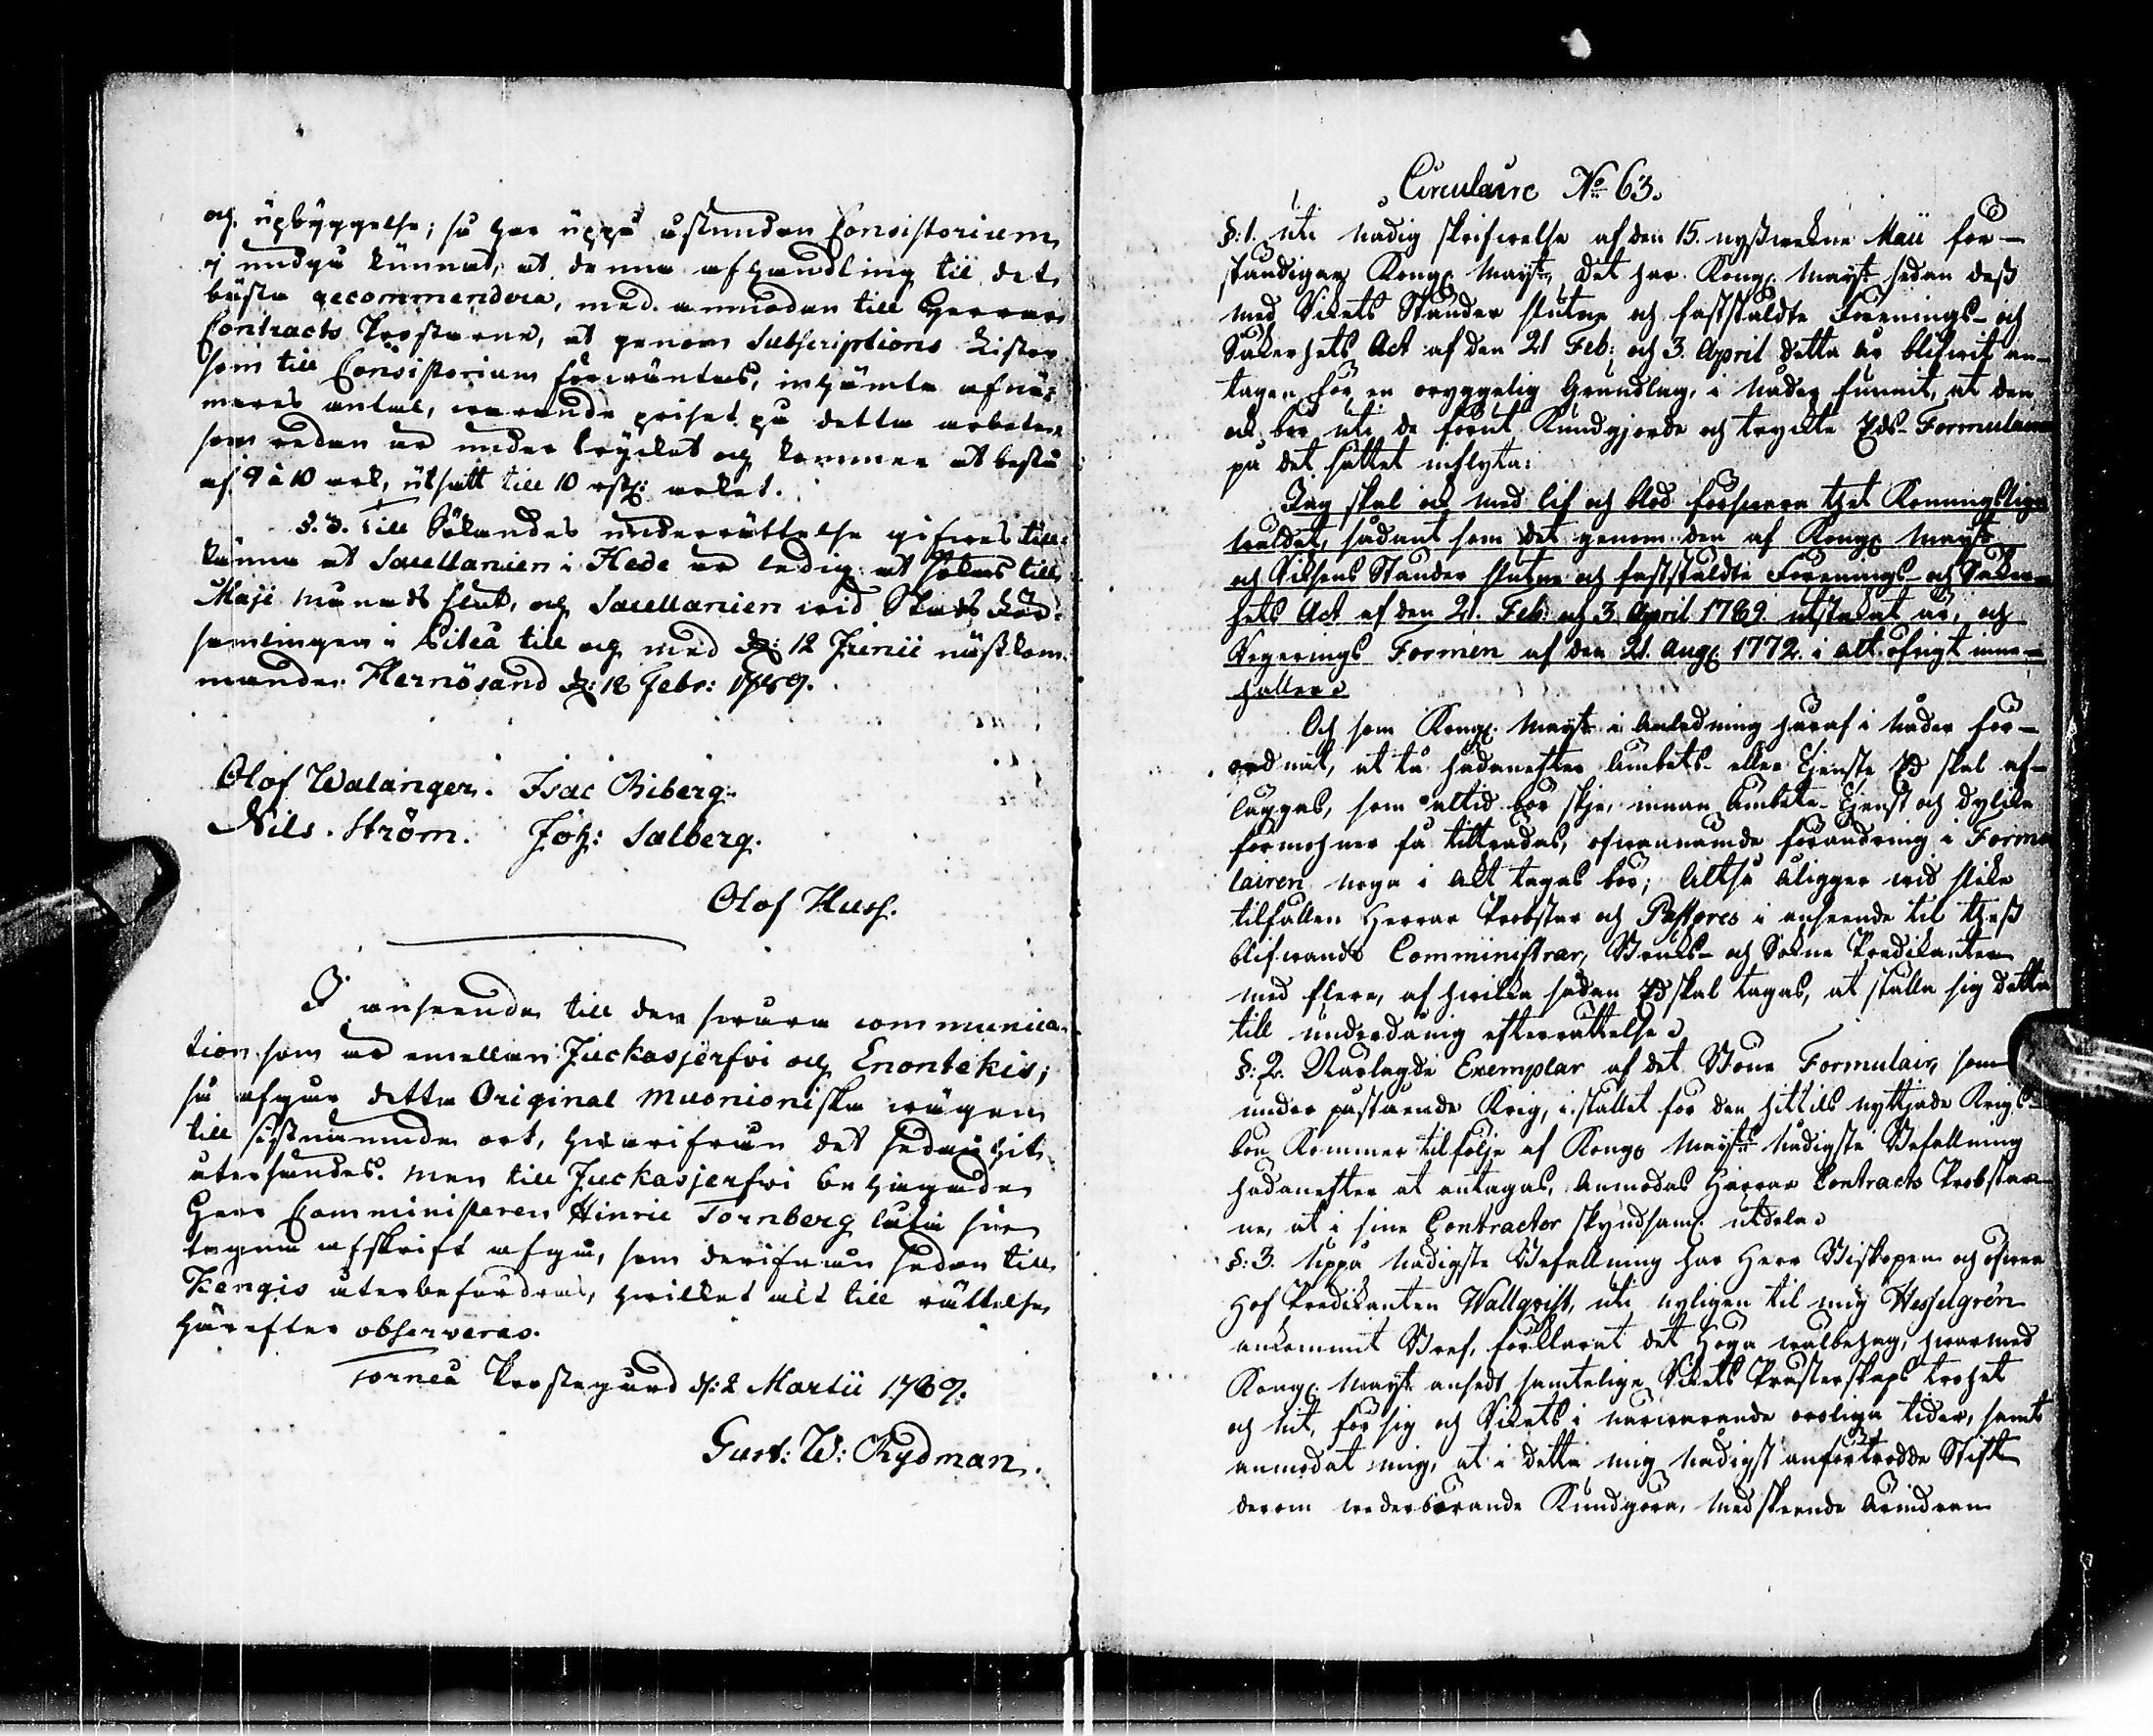 och upbyggelse; så har uppå åstundan Consistorium
ej undgå kunnat, at denna afhandling til det
bästa recommendera, med anmodan till Herrar
Contracts Prostarne, at genom Subscriptions Listor
som till Consistorium förwäntas, inhämta afnä-
mares antal, warande priset på detta arbete,
som redan är under trycket och kommer at bestå
af 9 à 10 ark, utsatt till 10 rst: arket.
§. 3. Till Sökandes underrättelse gifwes till-
känna at Sacellanien i Hede är ledig at sökas till
Maji månads slut, och Sacellanien wid Stads För-
samlingen i Piteå till och med d: 12 Junii nästkom-
mande. Hernösand d: 18 Febr: 1789.
Olof Walanger. Isac Biberg.
Nils Ström. Joh: Salberg.
Olof Huss.
I anseende till den swåra communica-
tion som är emellan Juckasjerfwi och Enontekis;
så afgår detta Original Muonioniska wägen
till sistnämnde ort, hwarifrån det sedan hit
återsändes. Men till Juckasjerfwi behagade
Herr Comministeren Hinric Tornberg låta här
tagna afskrift afgå, som derifrån sedan till
Kengis återbefordras, hwilket alt till rättelse
härefter observeras.
Torneå Prostegård d: 2 Martii 1789.
Gust: W: Rydman.
Circulaire No 63.
§: 1. Uti Nådig skrifwelse af den 15. nystwekne Maii för-
ständigar Kongl. Mayt, det har Kongl. Mayt sedan dess
med Rikets Ständer slutne och fastställdte Förenings- och
Säkerhets Act af den 21 Feb: och 3. April detta år blifwit an-
tagen för en oryggelig Grundlag, i Nåder funnit, at den
ock bör uti de förut Kundgjorde och tryckte Eds-Formulairer
på det sättet inflyta:
Jag skal ock med lif och blod försvara thet Konungsliga
wäldet, sådant som det genom den af Kongl. Mayt
och Riksens Ständer slutne och fastställdte Förenings- och Säker-
hets Act af den 21. Feb: och 3. April 1789 utstakat är, och
Regerings Formen af den 21. Aug: 1772. i alt öfrigt inne-
håller.
Och som Kongl. Mayt i Anledning häraf i Nåder för-
ordnat, at då hädanefter Embets- eller Tjenste Ed skal af-
läggas, som altid bör skje, innan Embete, Tjenst och dylika
förmohner få tillträdas, ofwannämde förändring i Formu
lairen noga i Akt tagas bör; Altså åligger wid slika
tilfällen Herrar Probstar och Pastores i anseende til thess
blifwande Comministrar, Bruks- och Sokne Predikanter
med flere, af hwilka sådan Ed skal tagas, at ställa sig detta
till underdånig efterrättelse.
§: 2. Närlagde Exemplar af det Böne Formulair, som
under påstående Krig, i stället för den hittils nyttjade Krigs-
bön Kommer til följe af Kongl. Mayts Nådigste Befallning
hädanefter at antagas, Anmodas Herrar Contracts Probstar-
ne, at i sine Contracter skyndsamt utdela.
§: 3. Uppå Nådigste Befallning har Herr Biskopen och öfwer
Hof Predikanten Wallqvist, uti nyligen til mig Hesselgrén
ankommit Bref, förklarat det Höga wälbehag, hwarmed
Kongl. Mayt ansedt samtelige Rikets Presterskaps trohet
och nit, för sig och Riket i närwarande oroliga tider, samt
anmodat mig, at i detta mig Nådigst anförtrodde Stift
derom wederbörande Kundgöra, Medskeende Erindran